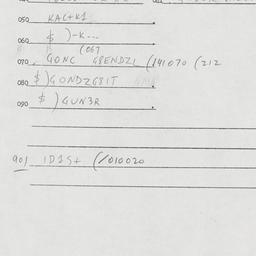 050 KAC+K1
060 $ )-K...
(067
070 GONC G8ENDZI (141070 (212
080 $ )GONDZG8IT
090 $ )GUN3R
901 ID1S+ (/010020